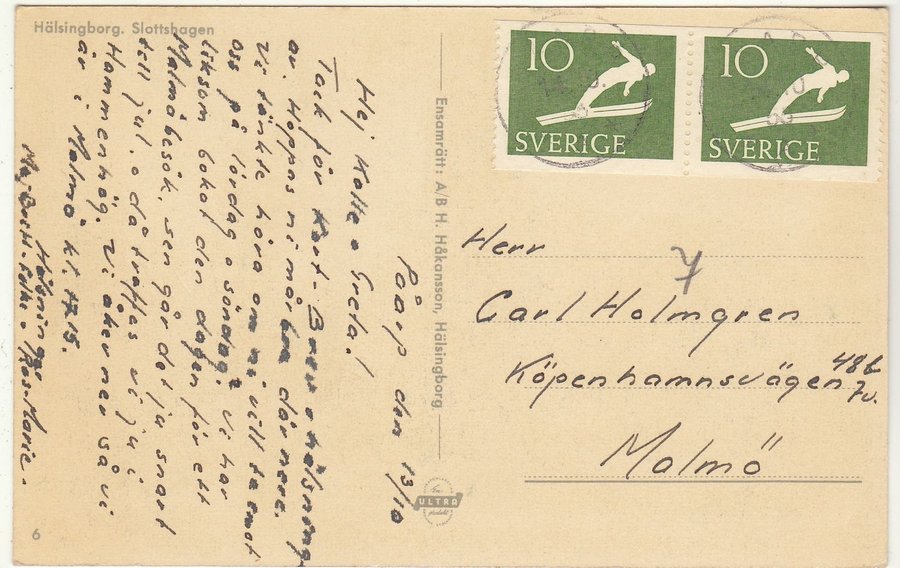 Hälsingborg. Slottshagen
Påarp den 13/10
Hej Kalle o Greta!
Tack för kort - Brev o hälsning-
ar. Hoppas ni mår bra där nere.
Vi tänkte höra om ni vill ta emot
oss på lördag o söndag? Vi har
liksom bokat den dagen för ett
Malmöbesök, sen går det ju snart
till jul. o då träffas vi ju i
Hammenhög. Vi åker ner så vi
är i Malmö kl. 17.15.
Hälsningar
Maj-Britt - o Rose-Marie.
Ensamrätt: A/B H. Håkansson, Hälsingborg
ULTRA
produkt
6
10
SVERIGE
10
SVERIGE
7
Herr
Carl Holmgren
Köpenhamnsvägen 48b
7v.
Malmö